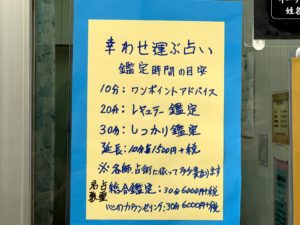 幸わせ運ぶ占い
鑑定時間の目安
10分：ワンポイントアドバイス
20分：レギュラー鑑定
30分：しっかり鑑定
延長：10分毎1500円+税
※名師、占術に依って多少異ります
総合鑑定：30分6000円+税
心のカウンセリング：30分6000円+税
姓名